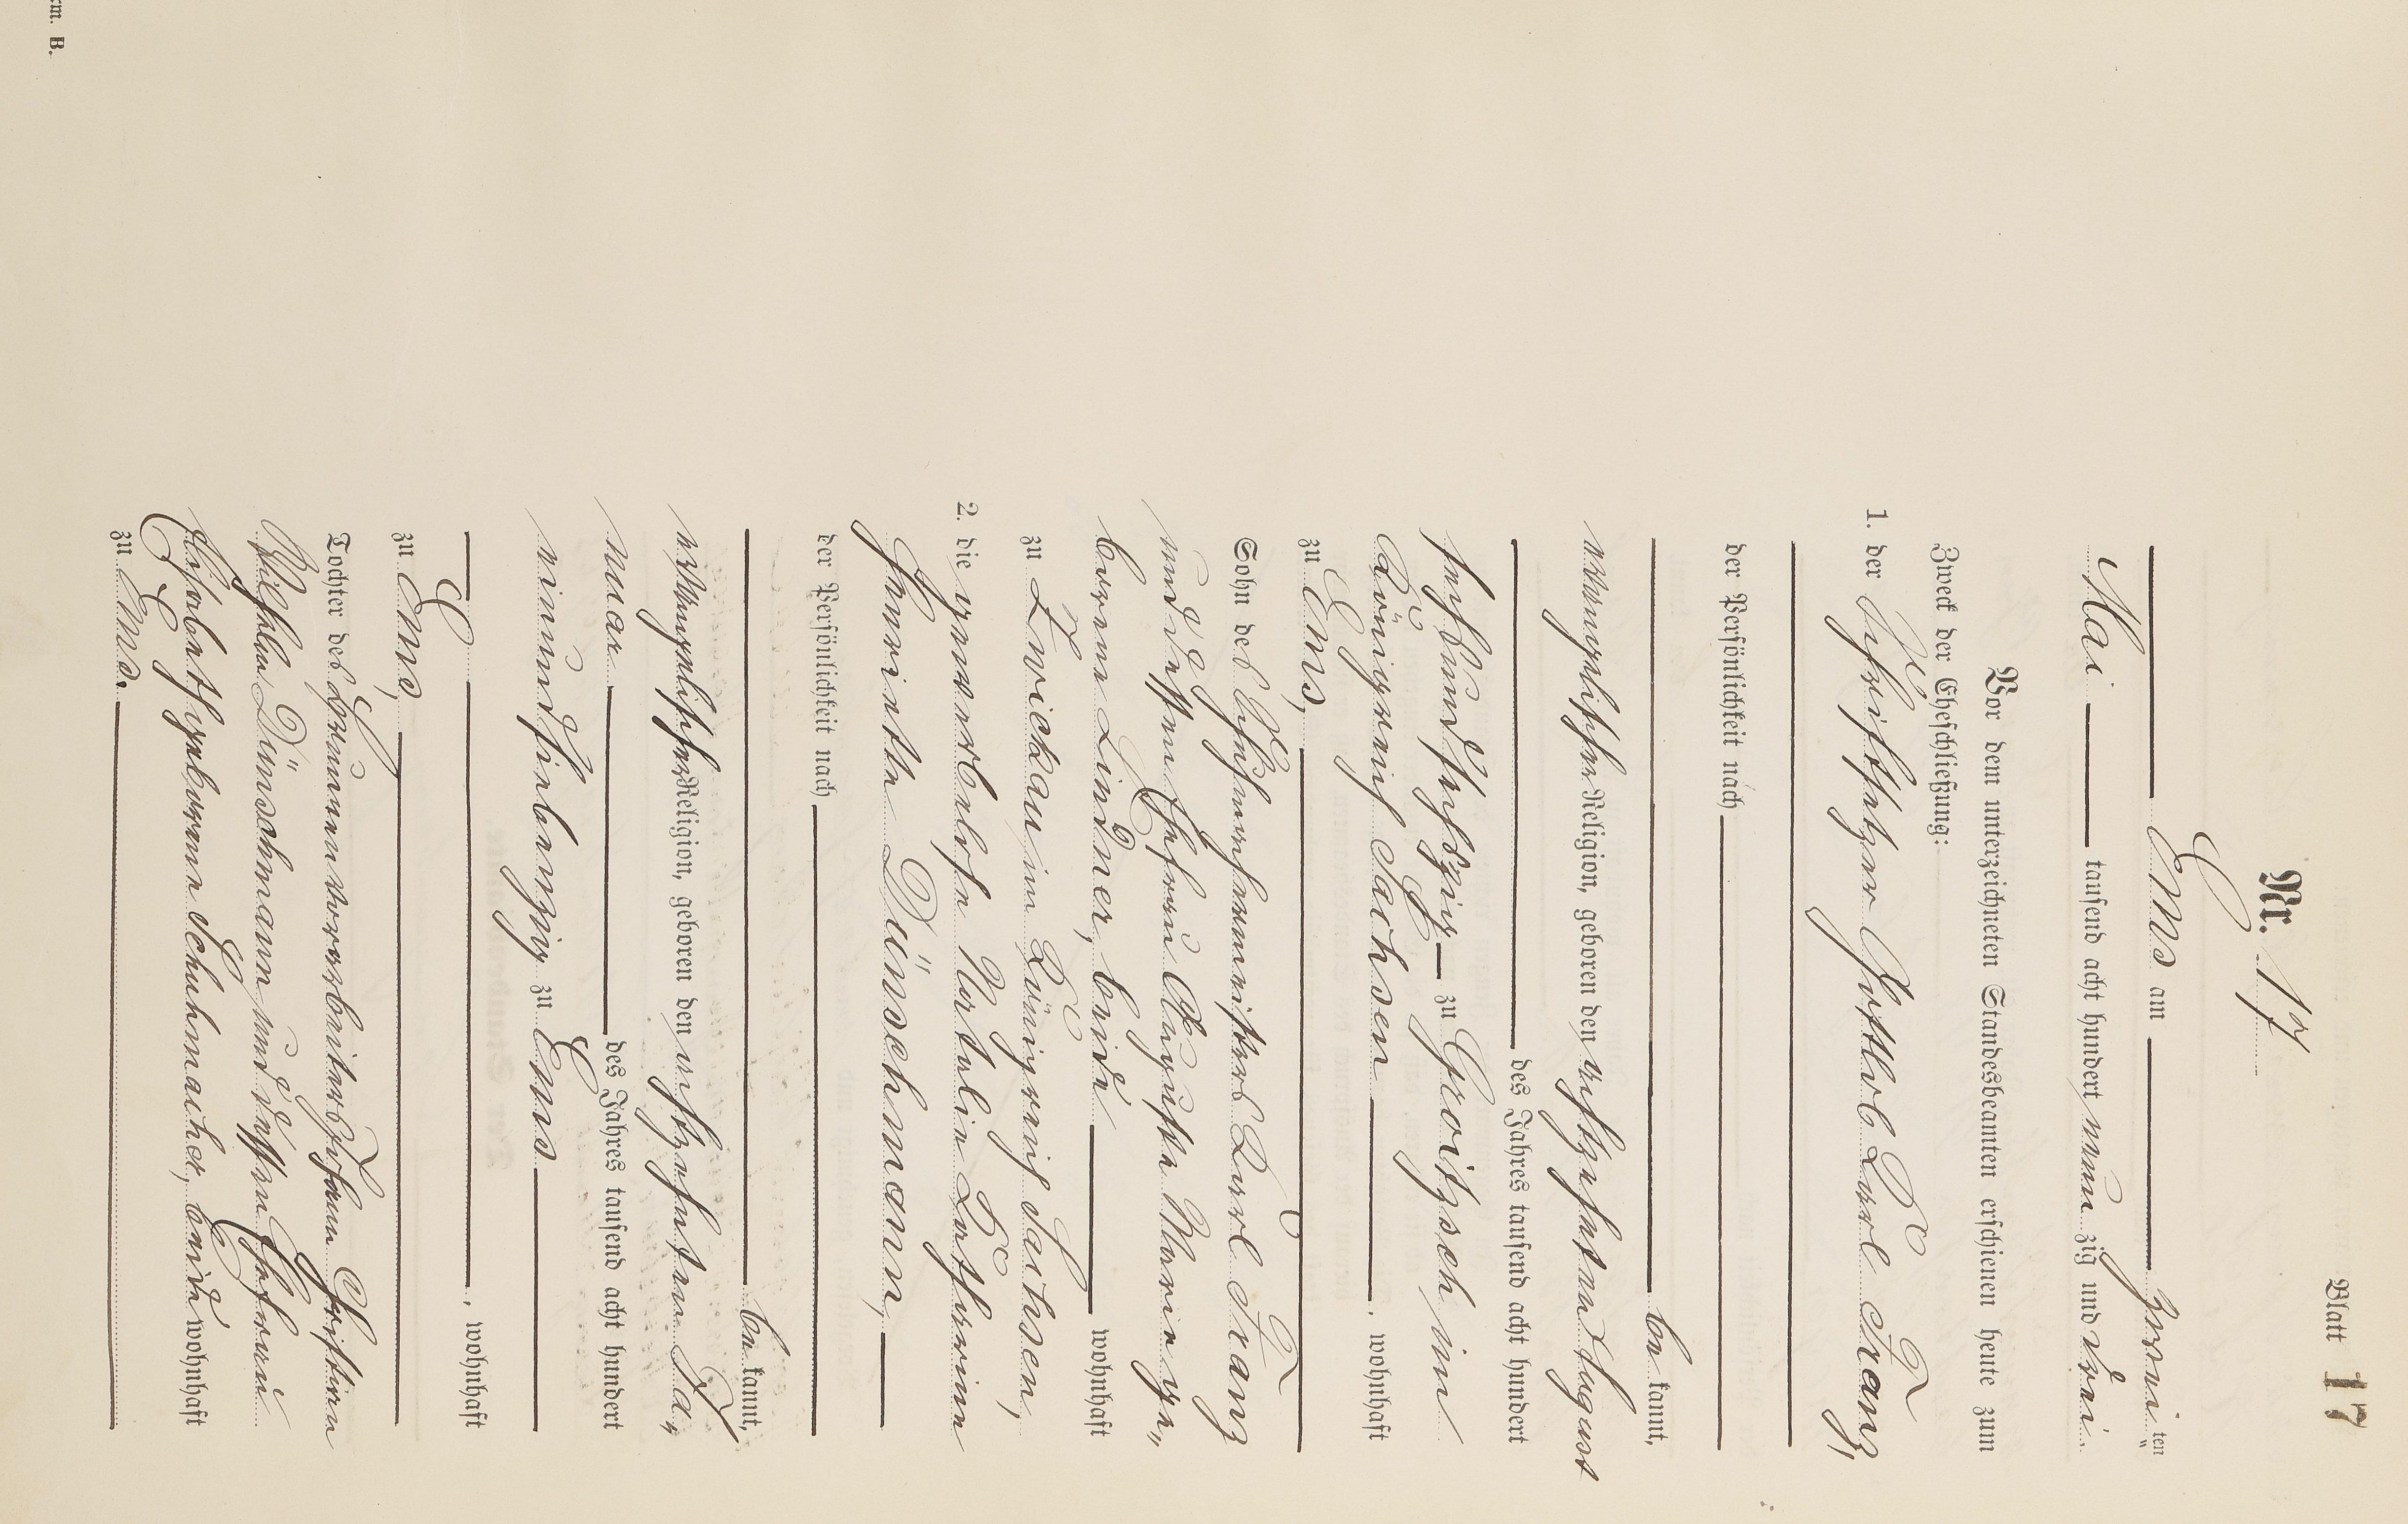 Blatt 17
Nr. 17
Ems am zweiten
Mai tausend acht hundert neun zig und drei
Vor dem unterzeichneten Standesbeamten erschienen heute zum
Zweck der Eheschließung:
1. der Schriftsetzer Gottlob Karl Franz,
der Persönlichkeit nach
be kannt,
evangelischer Religion, geboren den achtzehnten August
des Jahres tausend acht hundert
sechsundsechszig zu Groitzsch im
Königreich Sachsen, wohnhaft
zu Ems,
Sohn des Schuhmachermeisters Karl Franz
und dessen Ehefrau Auguste Marie ge„
borene Lindner, beide wohnhaft
zu Zwickau im Königreich Sachsen,
2. die gewerblose Natalie Katharine
Henriette Dünschmann,
der Persönlichkeit nach
be kannt,
evangelischer Religion, geboren den achtzehnten Ja„
nuar des Jahres tausend acht hundert
einundsiebenzig zu Ems
, wohnhaft
zu Ems,
Tochter des Brunnenvorarbeiters Johann Christian
Wilhelm Dünschmann und dessen Ehefrau
Elisabeth geborene Schuhmacher, beide wohnhaft
zu Ems.
rm. B.